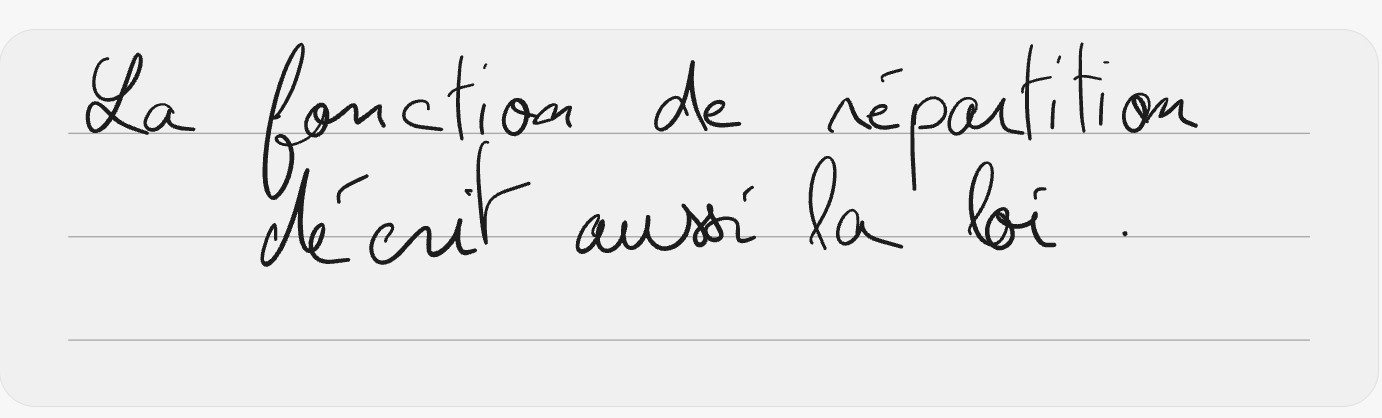 La fonction de répartition
décrit aussi la loi.